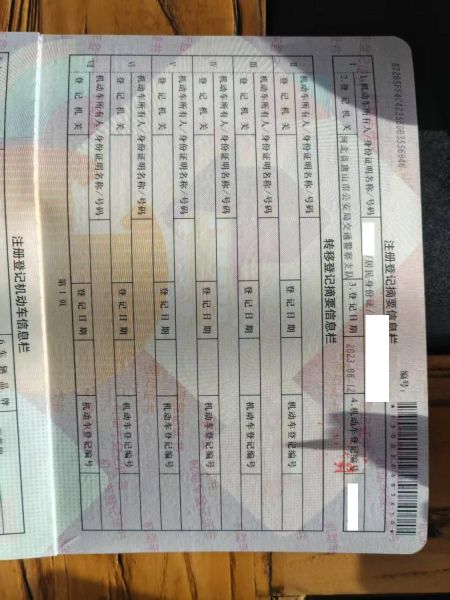 注册登记摘要信息栏
编号：
I 1.机动车所有人/身份证明名称/号码 /居民身份证/
2.登记机关 河北省唐山市公安局交通警察支队 3.登记日期 2023-06-12 4.机动车登记编号
转移登记摘要信息栏
II 机动车所有人/身份证明名称/号码
登记机关 登记日期 机动车登记编号
III 机动车所有人/身份证明名称/号码
登记机关 登记日期 机动车登记编号
IV 机动车所有人/身份证明名称/号码
登记机关 登记日期 机动车登记编号
V 机动车所有人/身份证明名称/号码
登记机关 登记日期 机动车登记编号
VI 机动车所有人/身份证明名称/号码
登记机关 登记日期 机动车登记编号
VII 机动车所有人/身份证明名称/号码
登记机关 登记日期 机动车登记编号
第1页
注册登记机动车信息栏
6.车辆品牌